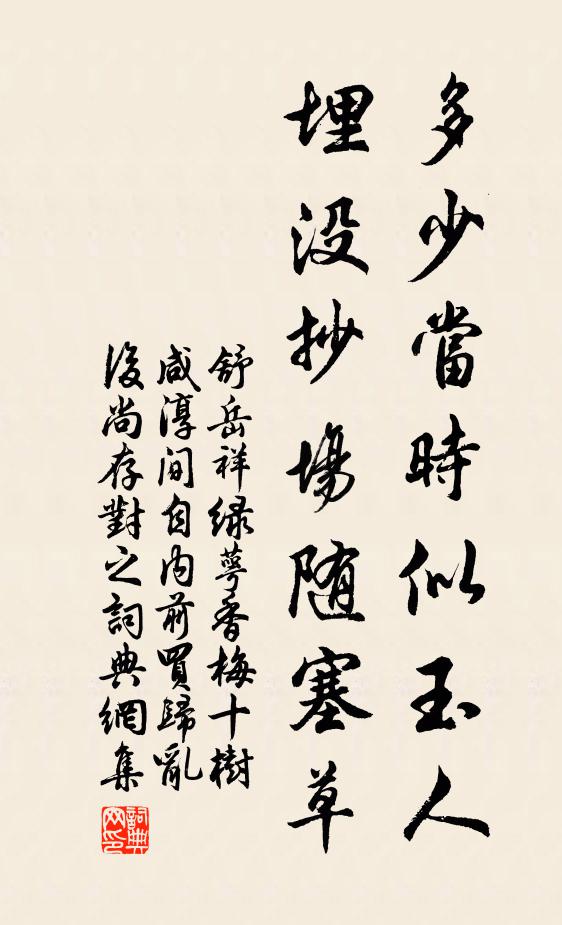 多少當時似玉人
埋没抄場随塞草
舒岳祥緑萼香梅十樹
咸淳间自内前買歸亂
後尚存對之詞典網集
詞典网印